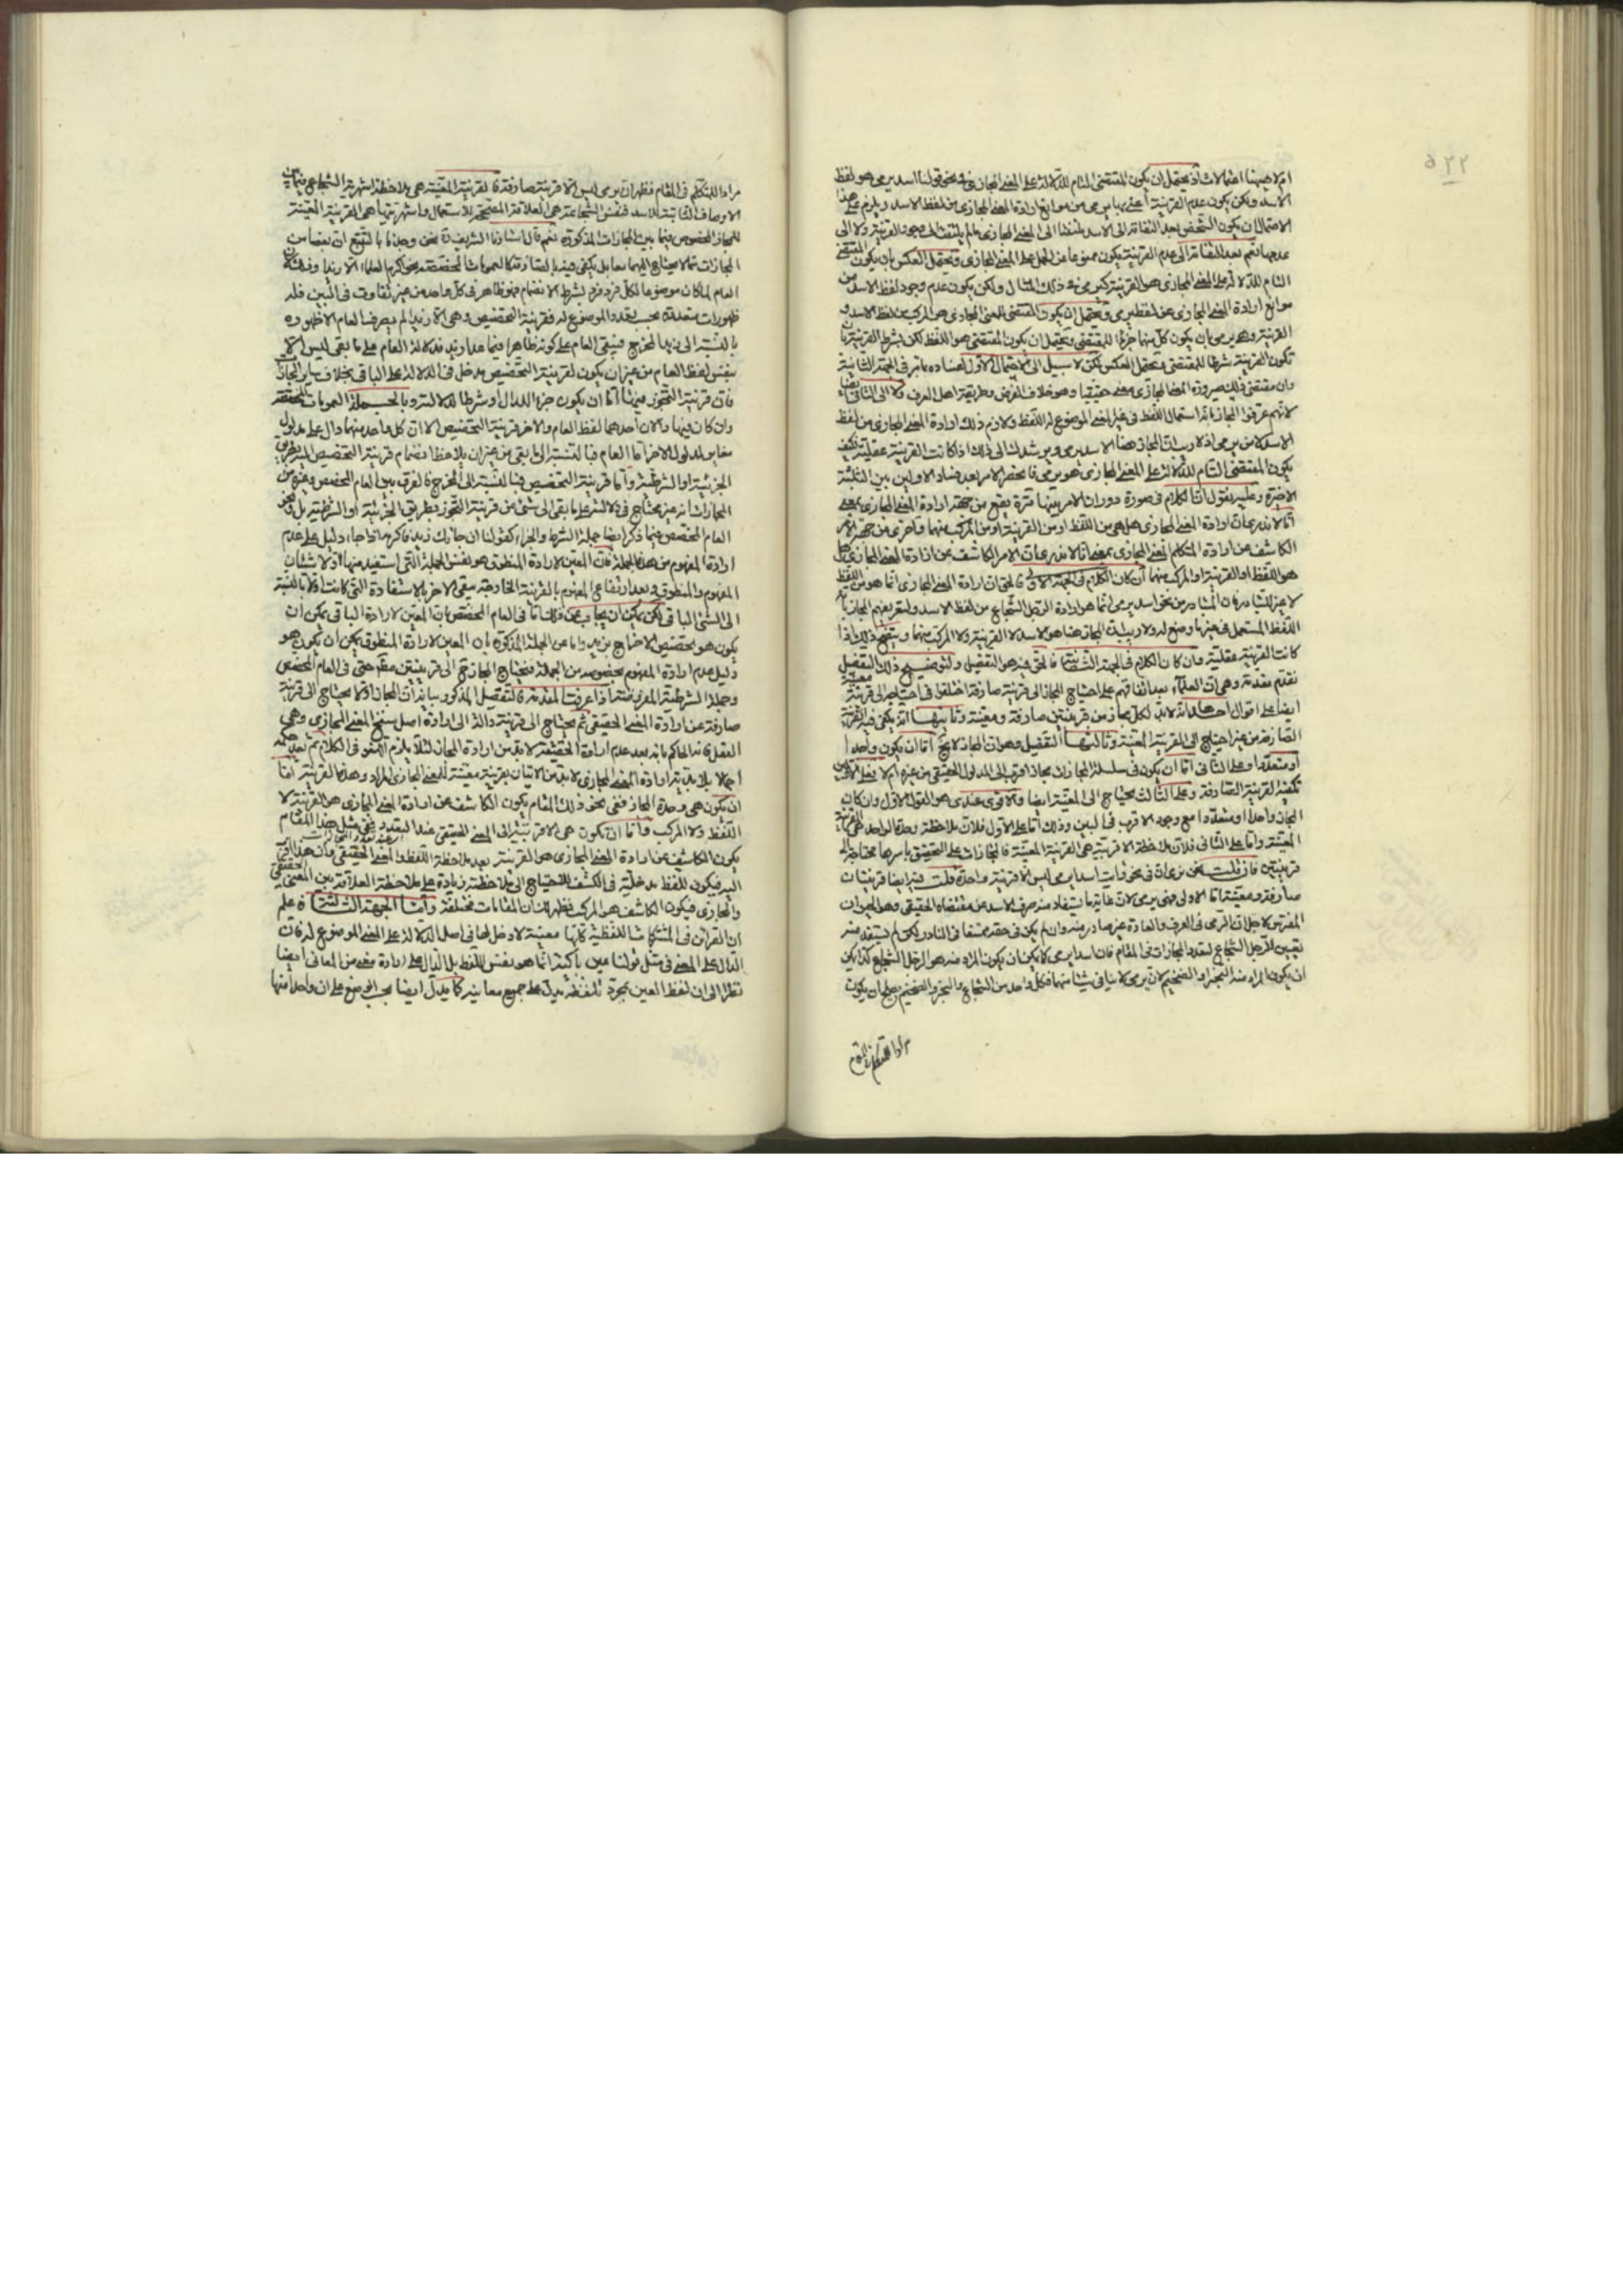 ٥٢٢
ام لا فيهنا احتمالات اذ يحتمل ان يكون المقتضى التام للدلالة على المعنى المجازى فى نحو قولنا اسد يرمى هو لفظ
الاسد ولكن يكون عدم القرينة اعنى من موانع ارادة المعنى المجازى من لفظ الاسد ويلزم على هذا
الاحتمال ان يكون الشخص بعد التفاته الى الاسد ملتفتا الى المعنى المجازى ما لم يلتفت الى وجود القرينة ولا الى
عدمها نعم بعد التفاته الى عدم القرينة يكون ممنوعا عن الحمل على المعنى المجازى ويحتمل العكس بان يكون المقتضى
التام للدلالة على المعنى المجازى هو القرينة كيرمى فى ذلك المثال ولكن يكون عدم وجود لفظ الاسد من
موانع ارادة المعنى المجازى عن لفظ يرمى ويحتمل ان يكون المقتضى للمعنى المجازى هو المركب من لفظ الاسد و
القرينة وهو يرمى بان يكون كل منهما جزء للمقتضى ويحتمل ان يكون المقتضى هو اللفظ لكن بشرط القرينة بان
تكون القرينة شرطا للمقتضى ويحتمل العكس لكن لا سبيل الى الاحتمال الاول لفساده بما مر فى الجهة الثانية
وان مقتضى ذلك صيرورة المعنى المجازى معنى حقيقيا وهو خلاف الفرض وطريقة اهل العرف ولا الى الثانى ايضا
لانهم عرفوا المجاز بانه استعمال اللفظ فى غير المعنى الموضوع له اللفظ ولازم ذلك ارادة المعنى المجازى من لفظ
الاسد لا من يرمى اذ لا ريب ان المجاز هنا الاسد لا يرمى ويرشدك الى ذلك اذا كانت القرينة عقلية فكيف
يكون المقتضى التام للدلالة على المعنى المجازى هو يرمى فانحصر الامر بعد فساد الاولين بين الثلثة
الاخيرة وعليه نقول ان الكلام فى صورة دوران الامر بينها تارة يقع من جهة ارادة المعنى المجازى بمعنى
انا لا ندرى ان ارادة المعنى المجازى هل هى من اللفظ او من القرينة او من المركب منهما واخرى من جهة الامر
الكاشف عن ارادة المتكلم المعنى المجازى بمعنى انا لا ندرى ان الامر الكاشف عن ارادة المعنى المجازى هل
هو اللفظ او القرينة او المركب منهما ان كان الكلام فى الجهة الاولى فالحق ان ارادة المعنى المجازى انما هو من اللفظ
لا غير للتبادر فان المتبادر من نحو اسد يرمى انما هو ارادة الرجل الشجاع من لفظ الاسد ولتعريفهم المجاز بانه
اللفظ المستعمل فى غير ما وضع له ولا ريب ان المجاز هنا هو الاسد لا القرينة ولا المركب منهما ويتضح ذلك اذا
كانت القرينة عقلية وان كان الكلام فى الجهة الثانية فالحق فيه هو التفصيل ولتوضيح ذلك التفصيل
نقدم مقدمة وهى ان العلماء بعد اتفاقهم على احتياج المجاز الى قرينة صارفة اختلفوا فى احتياجه الى قرينة معينة
ايضا على اقوال احدها انه لا بد لكل مجاز من قرينتين صارفة ومعينة وثانيها انه يكفى فيه القرينة
الصارفة من غير احتياج الى القرينة المعينة وثالثها التفصيل وهو ان المجاز لا يخ اما ان يكون واحدا
او متعددا وعلى الثانى اما ان يكون فى سلسلة المجازات مجاز اقرب الى المدلول الحقيقى من غيره ام لا فعلى الاولين
تكفيه القرينة الصارفة وعلى الثالث يحتاج الى المعينة ايضا والاقوى عندى هو القول الاول وان كان
المجاز واحدا او متعددا مع وجود الاقرب فى البين وذلك اما على الاول فلان ملاحظة وحدة الواحد هى القرينة
المعينة واما على الثانى فلان ملاحظة الاقربية هى القرينة المعينة فالمجازات على التحقيق باسرها محتاجة الى
قرينتين فان قلت نحن نرى ان فى نحو رايت اسدا يرمى ليس الا قرينة واحدة قلت فيه ايضا قرينتان
صارفة ومعينة اما الاولى فهى يرمى لان غاية ما يستفاد منه صرف الاسد عن مقتضاه الحقيقى وهو الحيوان
المفترس لاجل ان الرمى فى العرف والعادة غير صادر منه وان لم يكن فى حقه ممتنعا فى النادر لكن لم يستفد منه
تعيين الرجل الشجاع لتعدد المجازات فى المقام فان اسدا يرمى كما يمكن ان يكون المراد منه هو الرجل الشجاع كذا يمكن
ان يكون المراد منه البخر او الضخيم لان يرمى لا ينافى شيئا منهما فكل واحد من الشجاع والبخر والضخيم يصلح ان يكون
مرادا للمتكلم فى المقام
مرادا للمتكلم فى المقام فظهر ان يرمى ليس الا قرينة صارفة فالقرينة المعينة هى ملاحظة اشهرية الشجاع فيما بين
الاوصاف الثابتة للاسد فنفس الشجاعة هى العلاقة المصححة للاستعمال واشهريتها هى القرينة المعينة
للمجاز المخصوص فيما بين المجازات المذكورة نعم قال استادنا الشريف قده نحن وجدنا بالتتبع ان بعضا من
المجازات مما لا يحتاج اليهما معا بل يكتفى فيه بالصارفة كالعمومات المخصصة نحو اكرم العلماء الا زيدا وذلك لان
العام لما كان موضوعا لكل فرد فرد لشرط الانضمام فهو ظاهر فى كل واحد من غير تفاوت فى البين فله
ظهورات متعددة بحسب تعدد الموضوع له فقرينة التخصيص وهى الا زيدا لم يصرف العام الا ظهوره
بالنسبة الى زيد المخرج فيبقى العام على كونه ظاهرا فيما عدا زيد فدلالة العام على ما بقى ليس الا
بنفس لفظ العام من غير ان يكون لقرينة التخصيص مدخل فى الدلالة على الباقى بخلاف سائر المجازات
فان قرينة التجوز فيها اما ان يكون جزء الدال او شرطا للدلالة وبالجملة العمومات المخصصة
وان كان فيها دالان احدهما لفظ العام والاخر قرينة التخصيص الا ان كل واحد منهما دال على مدلول
مغاير لمدلول الاخر اما العام فبالنسبة الى ما بقى من غير ان يلاحظ انضمام قرينة التخصيص اليه بطريق
الجزئية او الشرطية واما قرينة التخصيص فبالنسبة الى المخرج فالفرق بين العام المخصص وغيره من
المجازات انه غير محتاج فى دلالته على ما بقى الى شئ من قرينة التجوز بطريق الجزئية او الشرطية بل ونحو
العام المخصص فيما ذكر ايضا جملة الشرط والجزاء كقولنا ان جائك زيد فاكرمه اذا جاء دليل على عدم
ارادة المفهوم من هذه الجملة فان المعين لارادة المنطوق هو نفس الجملة التى استفيد منها اولا شيئان
المفهوم والمنطوق وبعد ارتفاع المفهوم بالقرينة الخارجة يبقى الاخر بالاستفادة التى كانت اولا بالنسبة
الى الشئ الباقى لكن يمكن ان يجاب عن ذلك اما فى العام المخصص بان المعين لارادة الباقى يمكن ان
يكون هو تخصيص الاخراج بزيد واما عن الجملة المذكورة بان المعين لارادة المنطوق يمكن ان يكون هو
دليل عدم ارادة المفهوم بخصوصه من الجملة فيحتاج المجاز ح الى قرينتين مطلقا حتى فى العام المخصص
وجملة الشرطية المعرفة اذا عرفت المقدمة فالتفصيل المذكور بيانه ان المجاز اولا يحتاج الى قرينة
صارفة عن ارادة المعنى الحقيقى ثم يحتاج الى قرينة دالة الى ارادة اصل سنخ المعنى المجازى وهى
العقل فانه الحاكم بانه بعد عدم ارادة الحقيقة لا بد من ارادة المجاز لئلا يلزم اللغو فى الكلام ثم بعد حكمه
اجمالا بلابدية ارادة المعنى المجازى لا بد من الاتيان بقرينة معينة للمعنى المجازى المراد وهذه القرينة اما
ان يكون هى وحدة المجاز ففى نحو ذلك المقام يكون الكاشف عن ارادة المعنى المجازى هو القرينة لا
اللفظ ولا المركب واما ان تكون هى الاقربية الى المعنى الحقيقى عند التعدد ففى مثل هذا المقام
يكون الكاشف عن ارادة المعنى المجازى هو القرينة بعد ملاحظة اللفظ والمعنى الحقيقى وان هذا اقرب
اليه فيكون للفظ مدخلية فى الكشف للاحتياج الى ملاحظته زيادة على ملاحظة العلاقة بين المعنى الحقيقى
والمجازى فيكون الكاشف هو المركب فظهر ان المقامات مختلفة واما الجهة الثالثة فاعلم
ان القرائن فى المشتركات اللفظية كلها معينة لا دخل لها فى اصل الدلالة على المعنى الموضوع له فان
الدال على المعنى فى مثل قولنا عين باكية انما هو نفس اللفظ بل الدال على ارادة معنى من المعانى ايضا
نظرا الى ان لفظ العين بمجرد تلفظه يدل على جميع معانيه كما يدل ايضا بحسب الوضع على ان واحدا منها